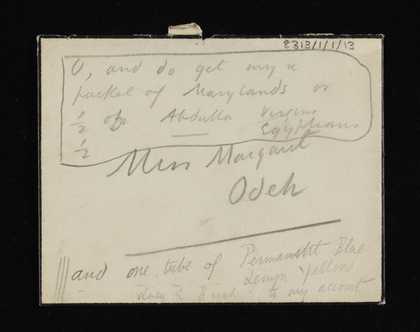 8313/1/1/13
O, and do get my
packet of Marylands or
½ of Abdulla Virginia
½ Egyptians
Miss Margaret
Odeh
and one tube of Permanent Blue
Lemon Yellow
to my account